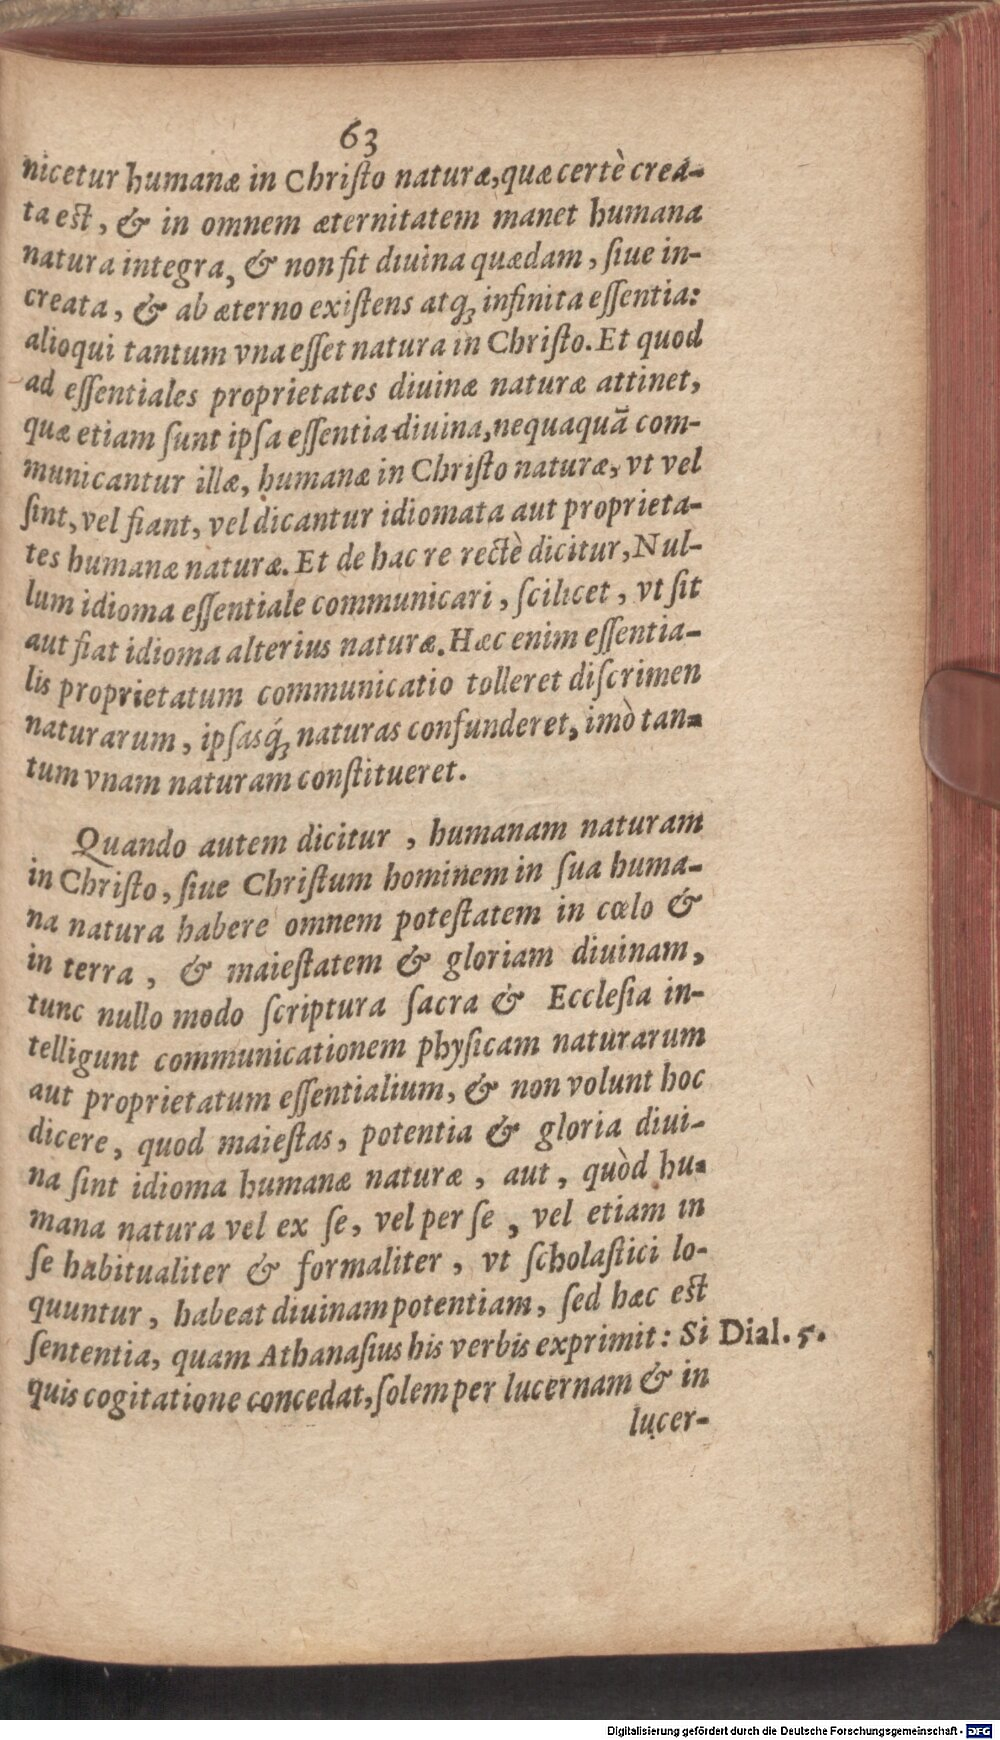 63
nicetur humanæ in Christo naturæ, quæ certè crea-
ta est, & in omnem æternitatem manet humana
natura integra, & non fit diuina quædam, siue in-
creata, & ab æterno existens atq́; infinita essentia:
alioqui tantum vna esset natura in Christo. Et quod
ad essentiales proprietates diuinæ naturæ attinet,
quæ etiam sunt ipsa essentia diuina, nequaquā com-
municantur illæ, humanæ in Christo naturæ, vt vel
sint, vel fiant, vel dicantur idiomata aut proprieta-
tes humanæ naturæ. Et de hac re rectè dicitur, Nul-
lum idioma essentiale communicari, scilicet, vt sit
aut fiat idioma alterius naturæ. Hæc enim essentia-
lis proprietatum communicatio tolleret discrimen
naturarum, ipsasq́; naturas confunderet, imò tan-
tum vnam naturam constitueret.
Quando autem dicitur, humanam naturam
in Christo, siue Christum hominem in sua huma-
na natura habere omnem potestatem in cœlo &
in terra, & maiestatem & gloriam diuinam,
tunc nullo modo scriptura sacra & Ecclesia in-
telligunt communicationem physicam naturarum
aut proprietatum essentialium, & non volunt hoc
dicere, quod maiestas, potentia & gloria diui-
na sint idioma humanæ naturæ, aut, quòd hu-
mana natura vel ex se, vel per se, vel etiam in
se habitualiter & formaliter, vt scholastici lo-
quuntur, habeat diuinam potentiam, sed hæc est
sententia, quam Athanasius his verbis exprimit: Si Dial. 5.
quis cogitatione concedat, solem per lucernam & in
lucer-
Digitalisierung gefördert durch die Deutsche Forschungsgemeinschaft - DFG